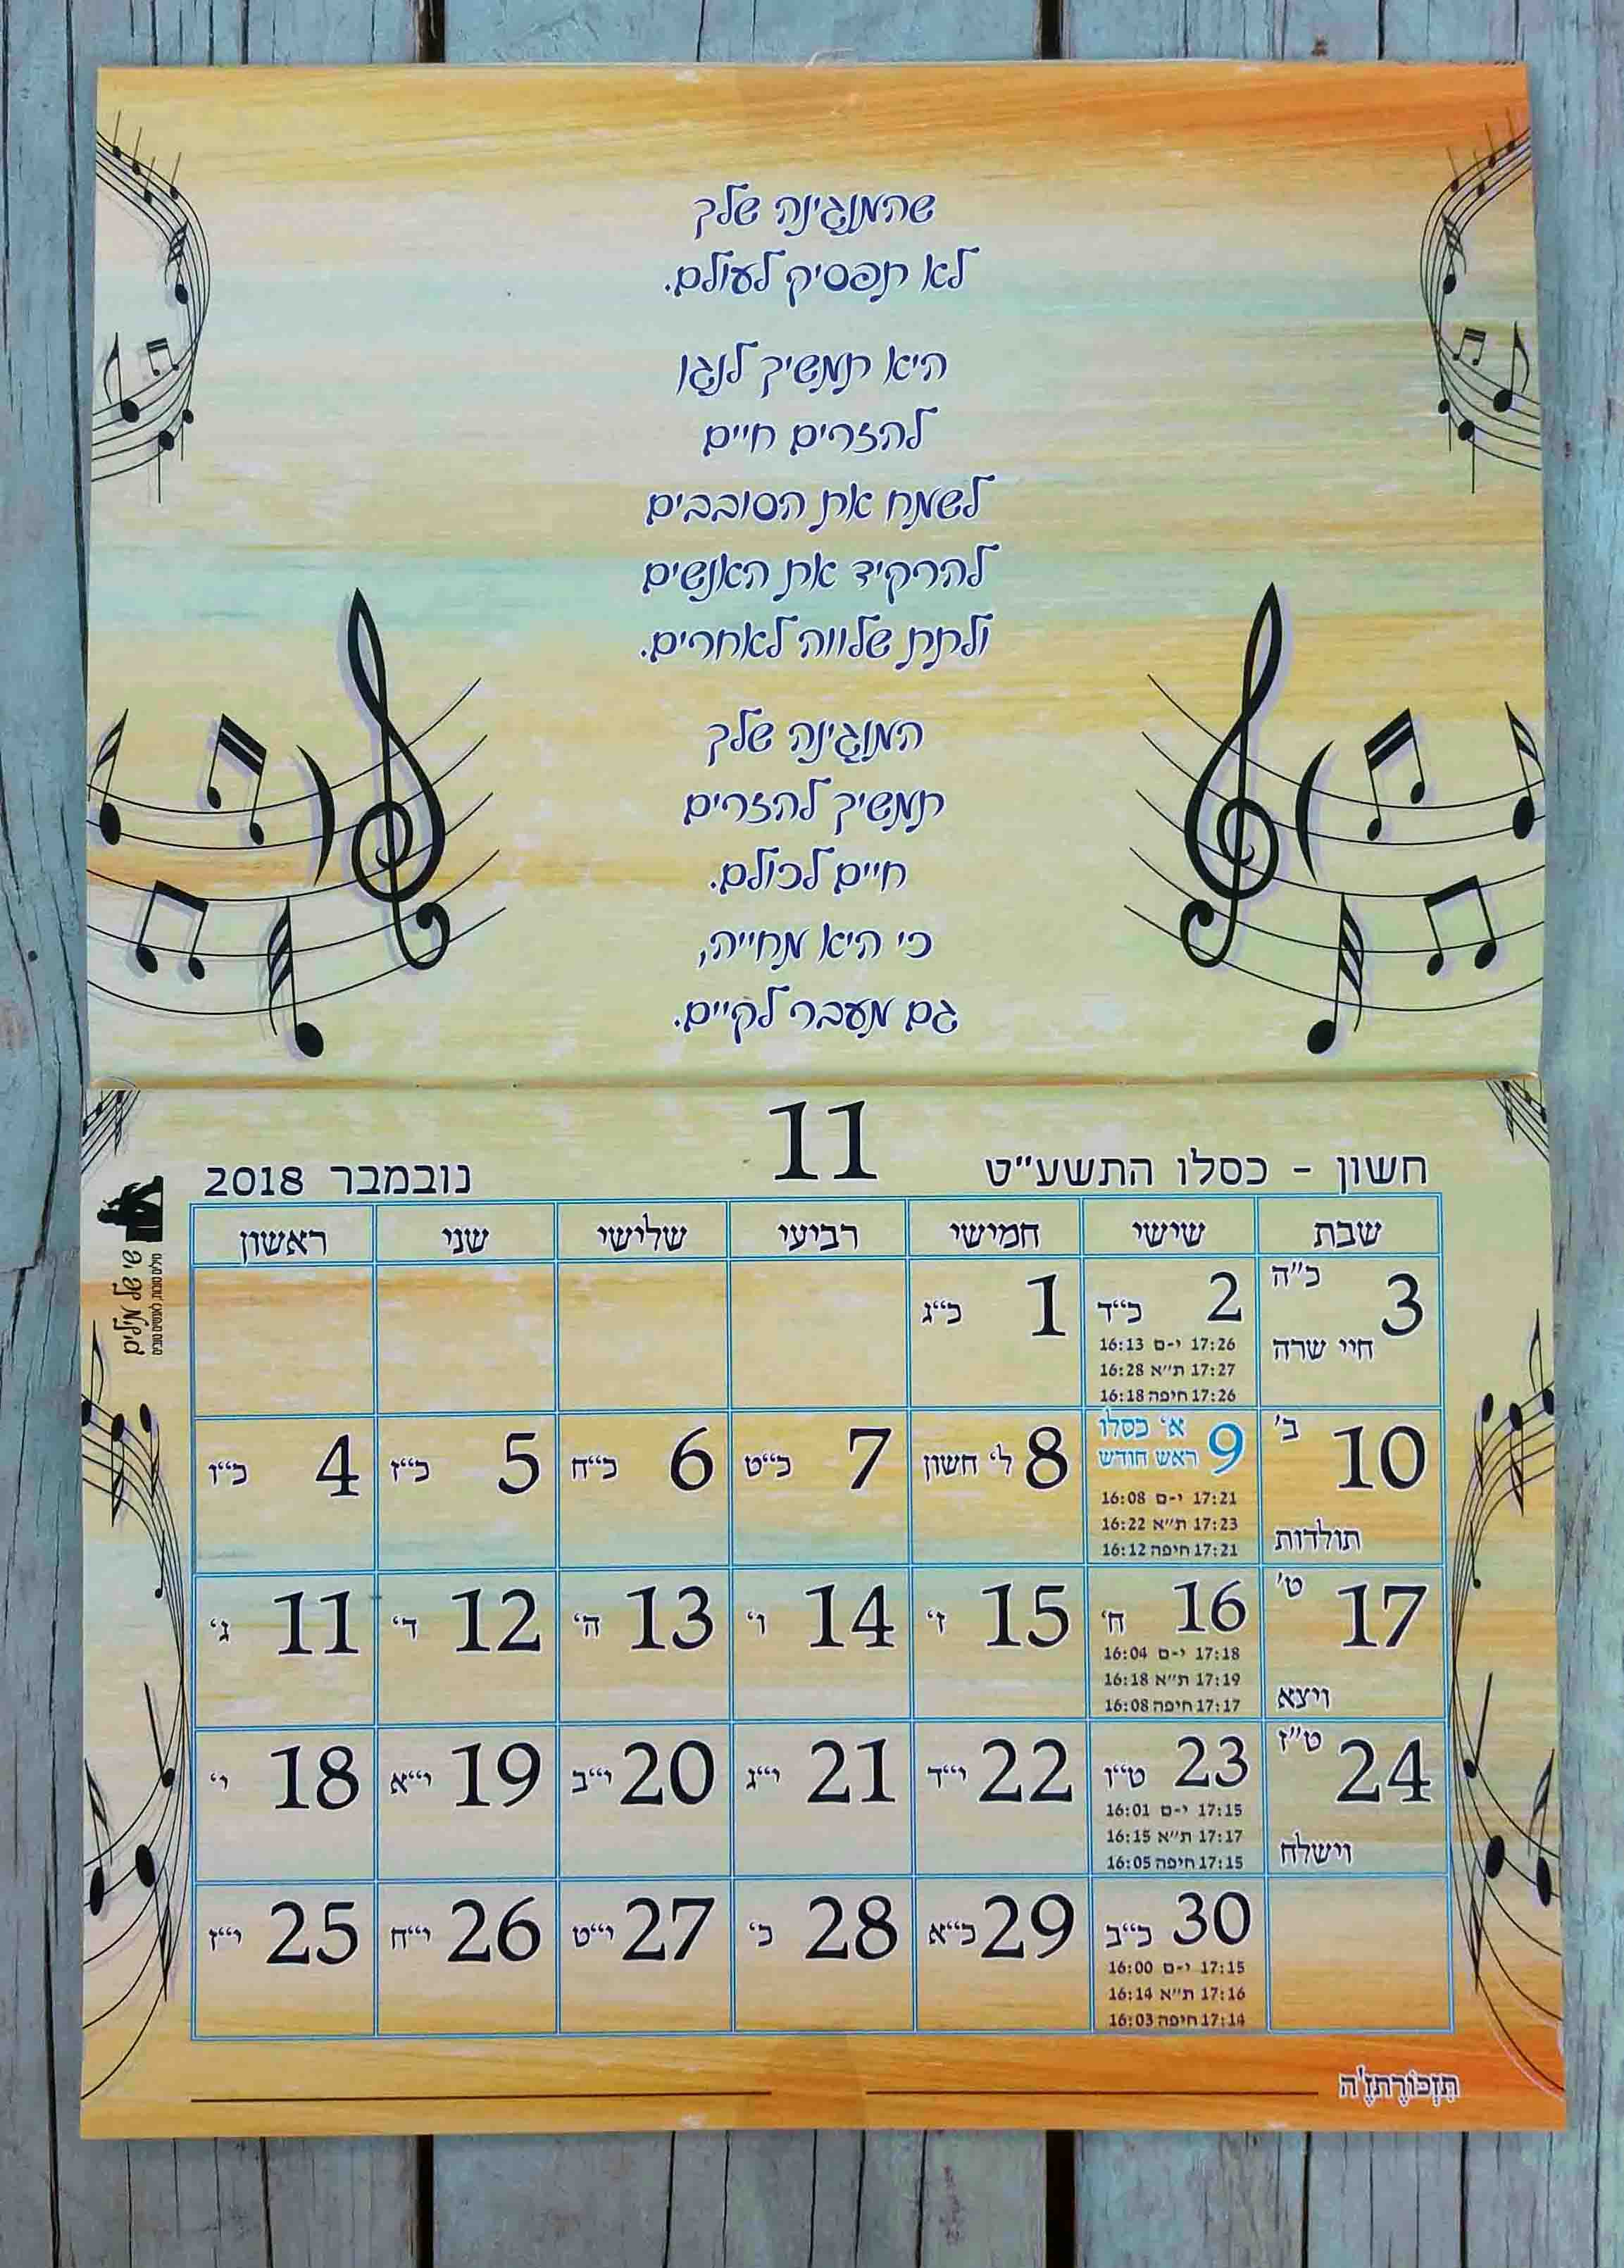 שהמנגינה שלך
לא תפסיק לעולם.
היא תמשיך לנגן
להזרים חיים
לשמח את הסובבים
להרקיד את האנשים
ולתת שלווה לאחרים.
המנגינה שלך
תמשיך להזרים
חיים לכולם.
כי היא מחייה,
גם מעבר לקיים.
11
חשון - כסלו התשע"ט
נובמבר 2018
שי של מילים
מילים טובות, לאנשים טובים
ראשון שני שלישי רביעי חמישי שישי שבת
1 כ"ג
2 כ"ד
16:13 י-ם 17:26
16:28 ת"א 17:27
16:18 חיפה 17:26
3 כ"ה
חיי שרה
4 כ"ו
5 כ"ז
6 כ"ח
7 כ"ט
8 ל' חשון
9 א' כסלו
ראש חודש
16:08 י-ם 17:21
16:22 ת"א 17:23
16:12 חיפה 17:21
10 ב'
תולדות
11 ג'
12 ד'
13 ה'
14 ו'
15 ז'
16 ח'
16:04 י-ם 17:18
16:18 ת"א 17:19
16:08 חיפה 17:17
17 ט'
ויצא
18 י'
19 י"א
20 י"ב
21 י"ג
22 י"ד
23 ט"ו
16:01 י-ם 17:15
16:15 ת"א 17:17
16:05 חיפה 17:15
24 ט"ז
וישלח
25 י"ז
26 י"ח
27 י"ט
28 כ'
29 כ"א
30 כ"ב
16:00 י-ם 17:15
16:14 ת"א 17:16
16:03 חיפה 17:14
תִזְכּוֹרֶתזֶ'ה